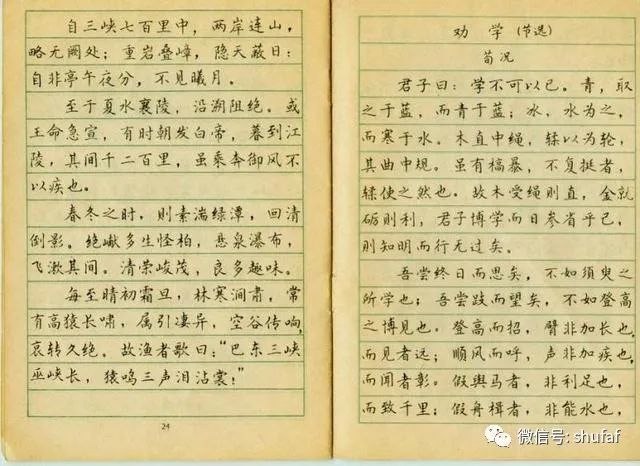 自三峡七百里中，两岸连山，
略无阙处；重岩叠嶂，隐天蔽日：
自非亭午夜分，不见曦月。
至于夏水襄陵，沿溯阻绝。或
王命急宣，有时朝发白帝，暮到江
陵，其间千二百里，虽乘奔御风不
以疾也。
春冬之时，则素湍绿潭，回清
倒影。绝巘多生怪柏，悬泉瀑布，
飞漱其间。清荣峻茂，良多趣味。
每至晴初霜旦，林寒涧肃，常
有高猿长啸，属引凄异，空谷传响，
哀转久绝。故渔者歌曰：“巴东三峡
巫峡长，猿鸣三声泪沾裳！”
24
劝 学（节选）
荀况
君子曰：学不可以已。青，取
之于蓝，而青于蓝；冰，水为之，
而寒于水。木直中绳，𫐓以为轮，
其曲中规。虽有槁暴，不复挺者，
𫐓使之然也。故木受绳则直，金就
砺则利，君子博学而日参省乎己，
则知明而行无过矣。
吾尝终日而思矣，不如须臾之
所学也；吾尝跂而望矣，不如登高
之博见也。登高而招，臂非加长也，
而见者远；顺风而呼，声非加疾也，
而闻者彰。假舆马者，非利足也，
而致千里；假舟楫者，非能水也，
微信号: shufaf